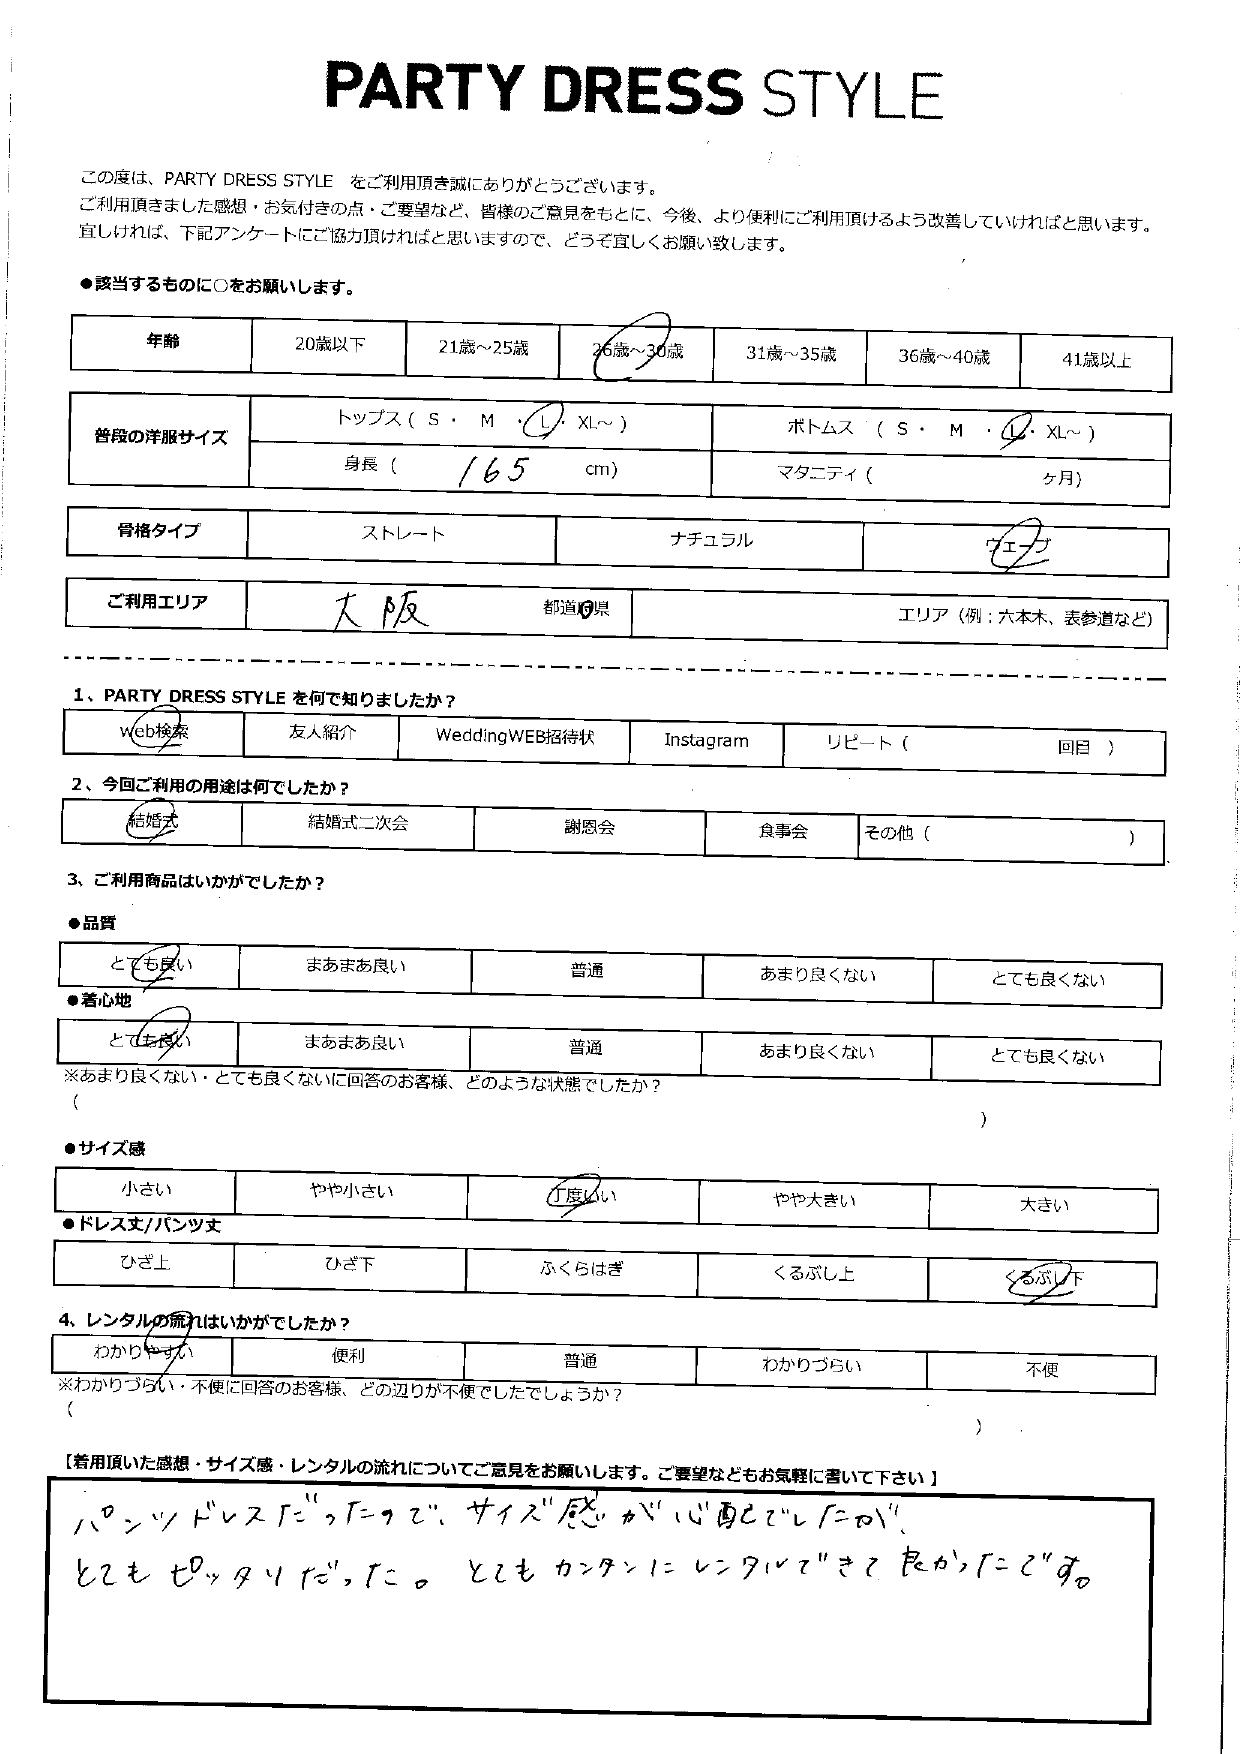 PARTY DRESS STYLE
この度は、PARTY DRESS STYLE をご利用頂き誠にありがとうございます。
ご利用頂きました感想・お気付きの点・ご要望など、皆様のご意見をもとに、今後、より便利にご利用頂けるよう改善していければと思います。
宜しければ、下記アンケートにご協力頂ければと思いますので、どうぞ宜しくお願い致します。
●該当するものに○をお願いします。
年齢 20歳以下 21歳～25歳 26歳～30歳 31歳～35歳 36歳～40歳 41歳以上
普段の洋服サイズ トップス ( S ・ M ・ L ・ XL～ ) ボトムス ( S ・ M ・ L ・ XL～ )
身長 ( 165 cm) マタニティ ( ケ月)
骨格タイプ ストレート ナチュラル ウェーブ
ご利用エリア 大阪 都道府県 エリア（例：六本木、表参道など）
1、PARTY DRESS STYLE を何で知りましたか？
web検索 友人紹介 WeddingWEB招待状 Instagram リピート ( 回目 )
2、今回ご利用の用途は何でしたか？
結婚式 結婚式二次会 謝恩会 食事会 その他 ( )
3、ご利用商品はいかがでしたか？
●品質
とても良い まあまあ良い 普通 あまり良くない とても良くない
●着心地
とても良い まあまあ良い 普通 あまり良くない とても良くない
※あまり良くない・とても良くないに回答のお客様、どのような状態でしたか？
( )
●サイズ感
小さい やや小さい 丁度いい やや大きい 大きい
●ドレス丈/パンツ丈
ひざ上 ひざ下 ふくらはぎ くるぶし上 くるぶし下
4、レンタルの流れはいかがでしたか？
わかりやすい 便利 普通 わかりづらい 不便
※わかりづらい・不便に回答のお客様、どの辺りが不便でしたでしょうか？
( )
【着用頂いた感想・サイズ感・レンタルの流れについてご意見をお願いします。ご要望などもお気軽に書いて下さい】
パンツドレスだったので、サイズ感が心配でしたが、
とてもピッタリだった。とてもカンタンにレンタルできて良かったです。